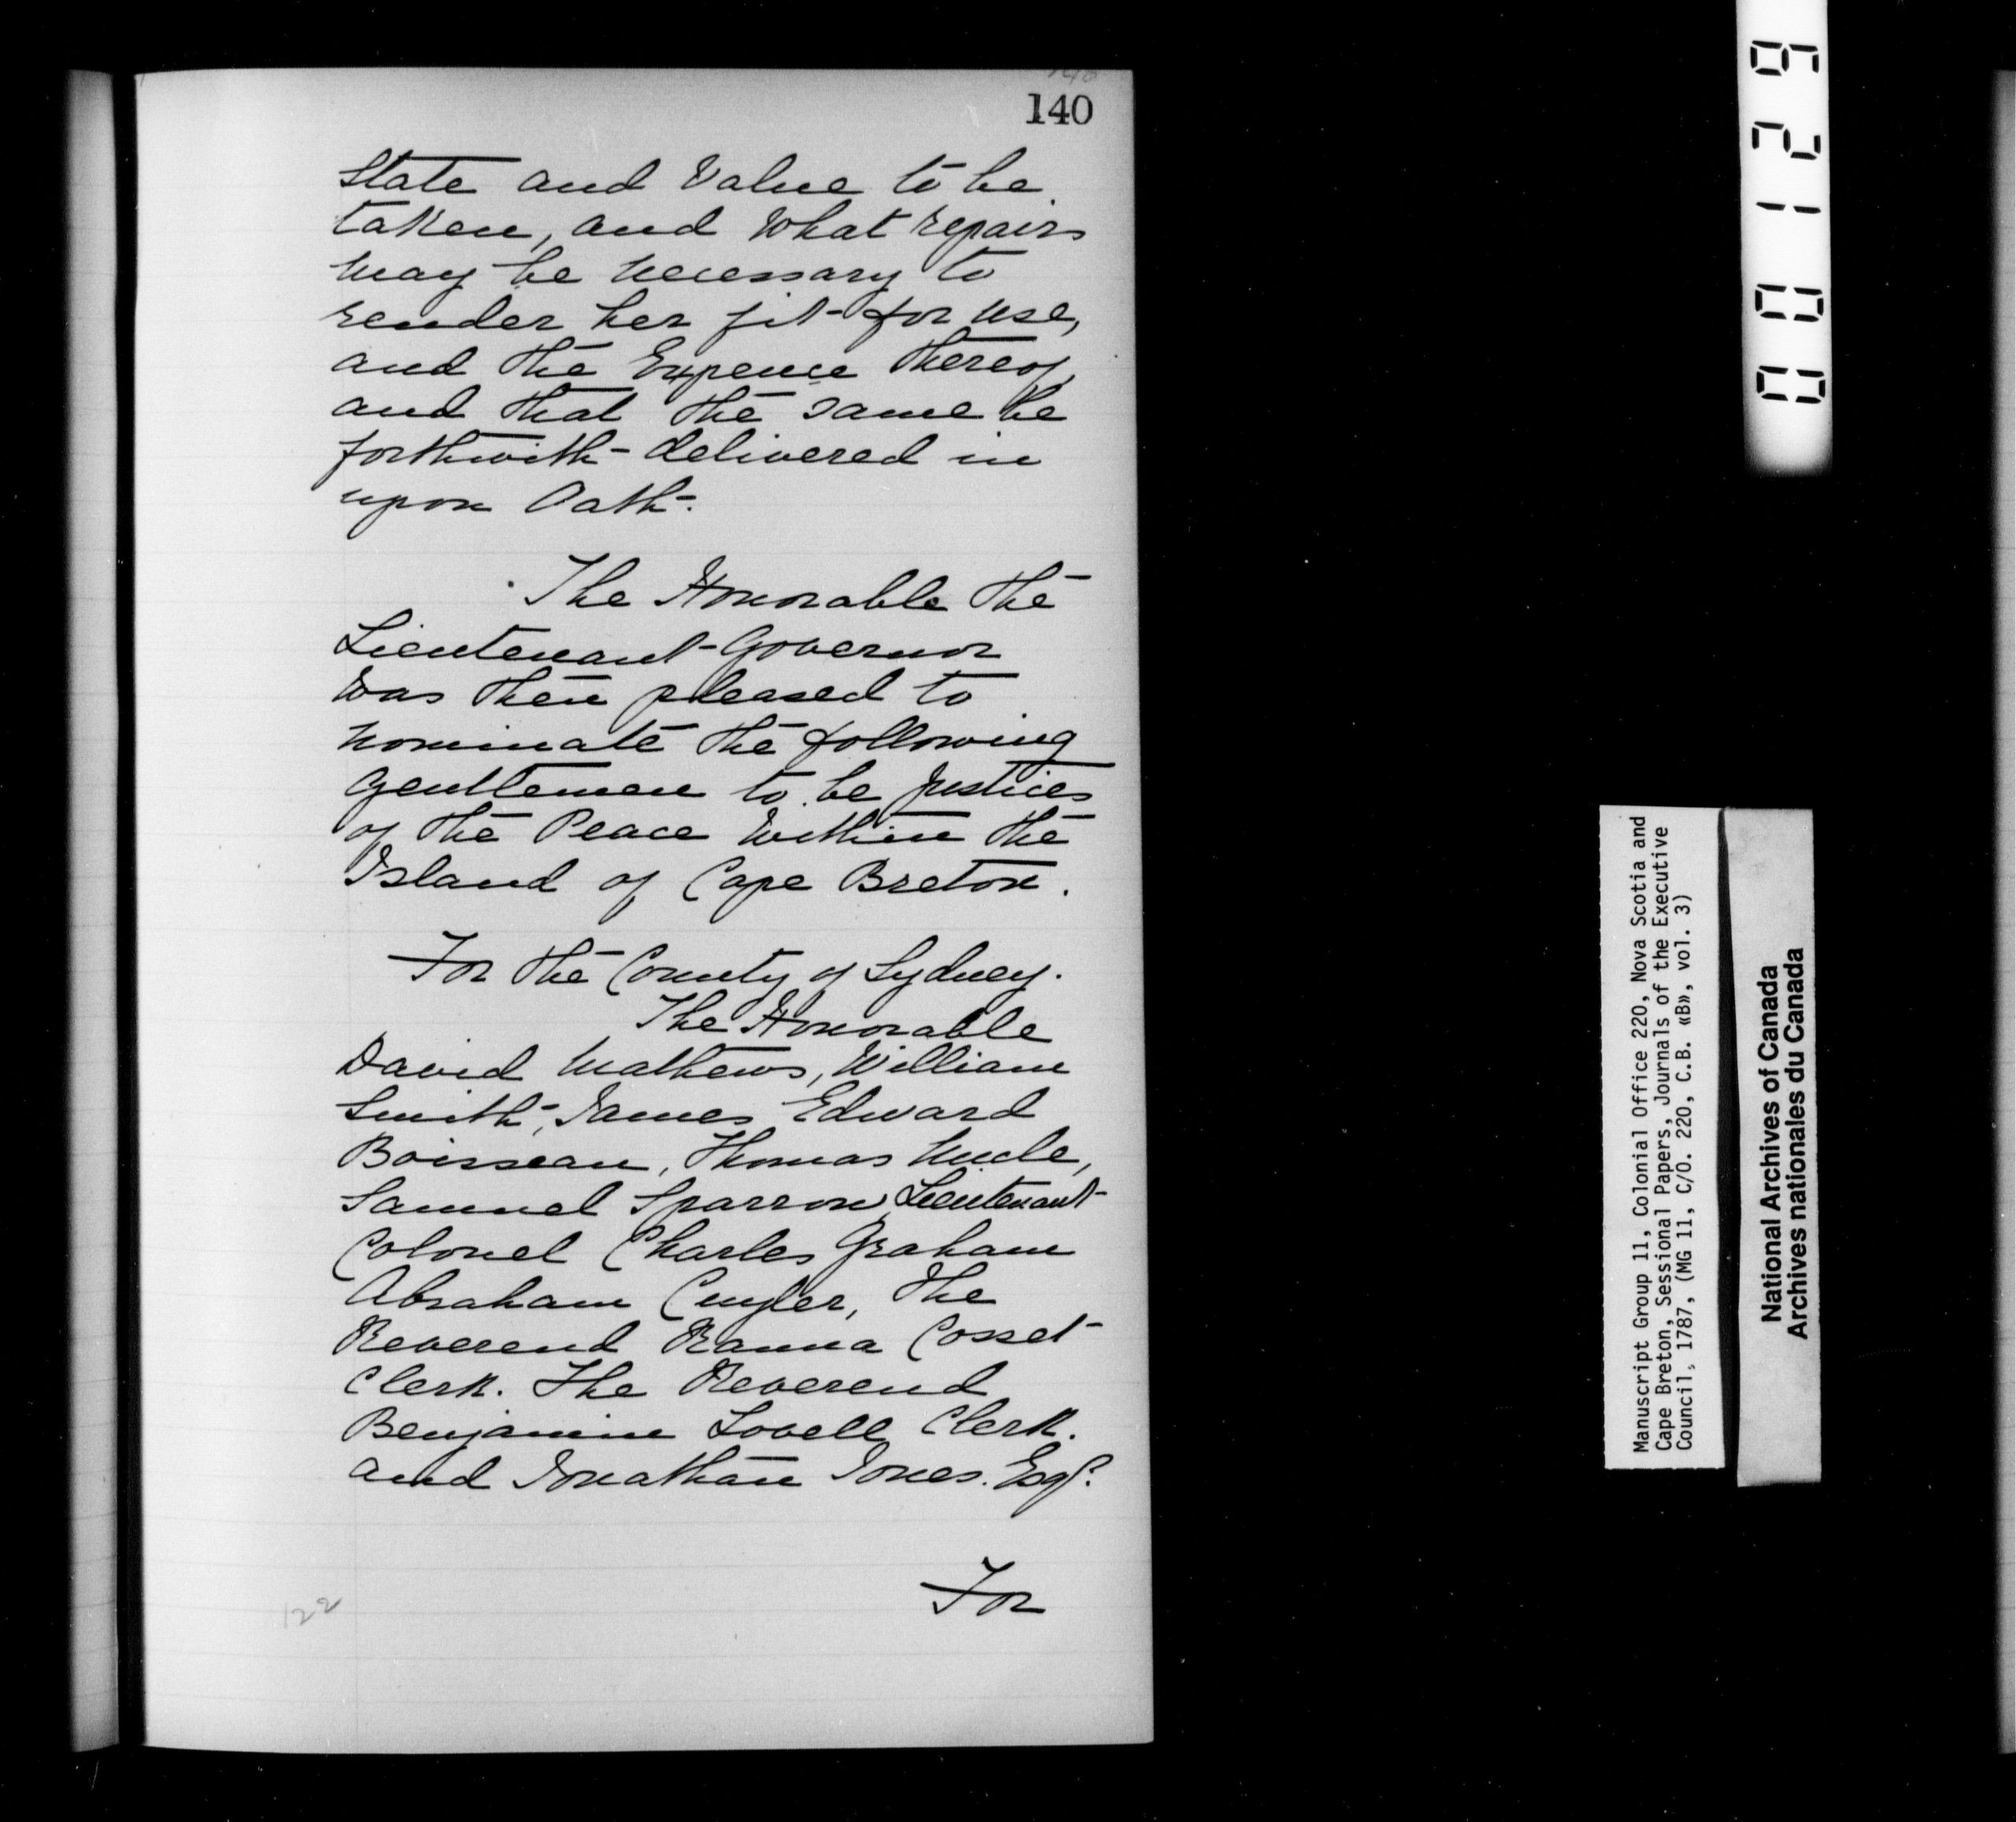 140
State and Value to be
taken, and what repairs
may be necessary to
render her fit for use,
and the Expence thereof,
and that the same be
forthwith delivered in
upon Oath.
The Honorable the
Lieutenant-Governor
was then pleased to
nominate the following
gentlemen to be Justices
of the Peace within the
Island of Cape Breton.
For the County of Sydney.
The Honorable
David Mathews, William
Smith, James Edward
Boisseau, Thomas Uncle,
Samuel Sparrow, Lieutenant
Colonel Charles Graham
Abraham Cuyler, The
Reverend Ranna Cosset
Clerk. The Reverend
Benjamin Lovell Clerk.
and Jonathan Jones. Esqr.
For
122
001129
Manuscript Group 11, Colonial Office 220, Nova Scotia and
Cape Breton, Sessional Papers, Journals of the Executive
Council, 1787, (MG 11, C/O. 220, C.B. «B», vol. 3)
National Archives of Canada
Archives nationales du Canada